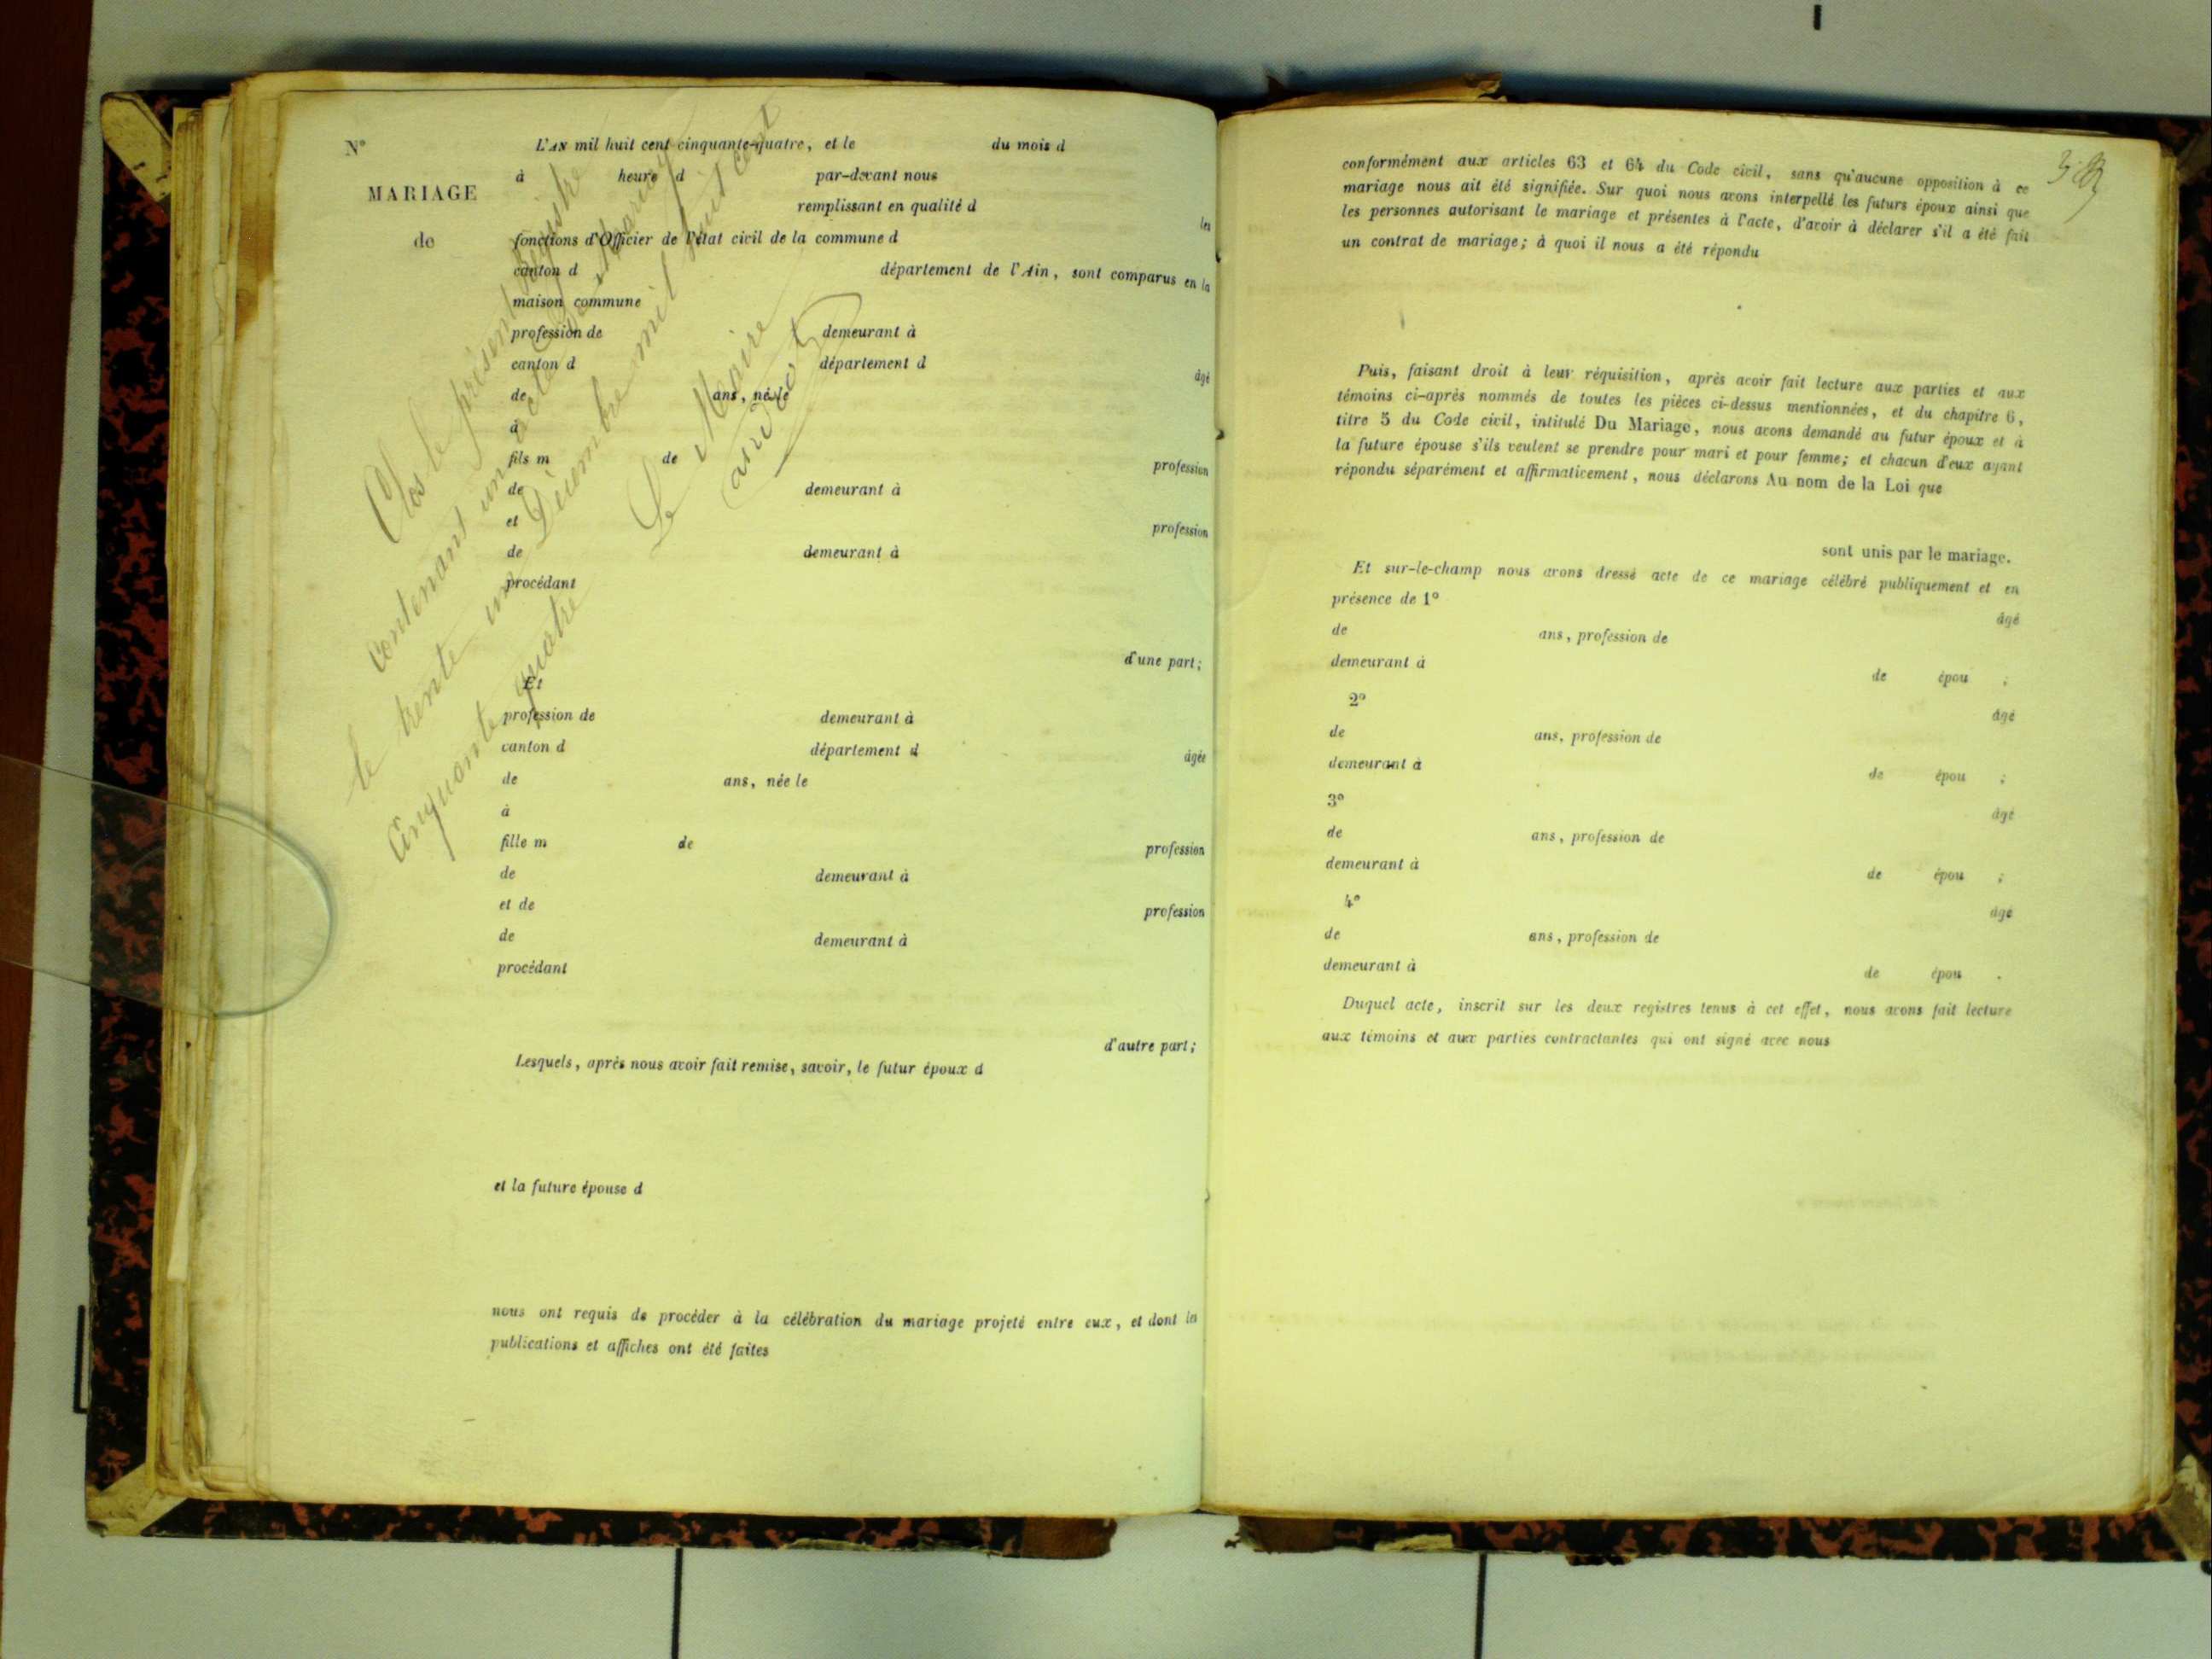 N°
MARIAGE
de
L'AN mil huit cent cinquante-quatre, et le du mois d
à heure d par-devant nous
remplissant en qualité d les
fonctions d'Officier de l'état civil de la commune d
canton d département de l'Ain, sont comparus en la
maison commune
profession de demeurant à
canton d département d âgé
de ans, né le
à
fils m de profession
de demeurant à
et profession
de demeurant à
procédant
d'une part;
Et
profession de demeurant à
canton d département d âgée
de ans, née le
à
fille m de profession
de demeurant à
et de profession
de demeurant à
procédant
d'autre part;
Lesquels, après nous avoir fait remise, savoir, le futur époux d
et la future épouse d
nous ont requis de procéder à la célébration du mariage projeté entre eux, et dont les
publications et affiches ont été faites
Clos le présent Registre
contenant un acte de Mariage
le trente un Décembre mil huit cent
Cinquante quatre
Le Maire
conformément aux articles 63 et 64 du Code civil, sans qu'aucune opposition à ce
mariage nous ait été signifiée. Sur quoi nous avons interpellé les futurs époux ainsi que
les personnes autorisant le mariage et présentes à l'acte, d'avoir à déclarer s'il a été fait
un contrat de mariage; à quoi il nous a été répondu
Puis, faisant droit à leur réquisition, après avoir fait lecture aux parties et aux
témoins ci-après nommés de toutes les pièces ci-dessus mentionnées, et du chapitre 6,
titre 5 du Code civil, intitulé Du Mariage, nous avons demandé au futur époux et à
la future épouse s'ils veulent se prendre pour mari et pour femme; et chacun d'eux ayant
répondu séparément et affirmativement, nous déclarons Au nom de la Loi que
sont unis par le mariage.
Et sur-le-champ nous avons dressé acte de ce mariage célébré publiquement et en
présence de 1° âgé
de ans, profession de
demeurant à de épou ;
2° âgé
de ans, profession de
demeurant à de épou ;
3° âgé
de ans, profession de
demeurant à de épou ;
4° âgé
de ans, profession de
demeurant à de épou .
Duquel acte, inscrit sur les deux registres tenus à cet effet, nous avons fait lecture
aux témoins et aux parties contractantes qui ont signé avec nous